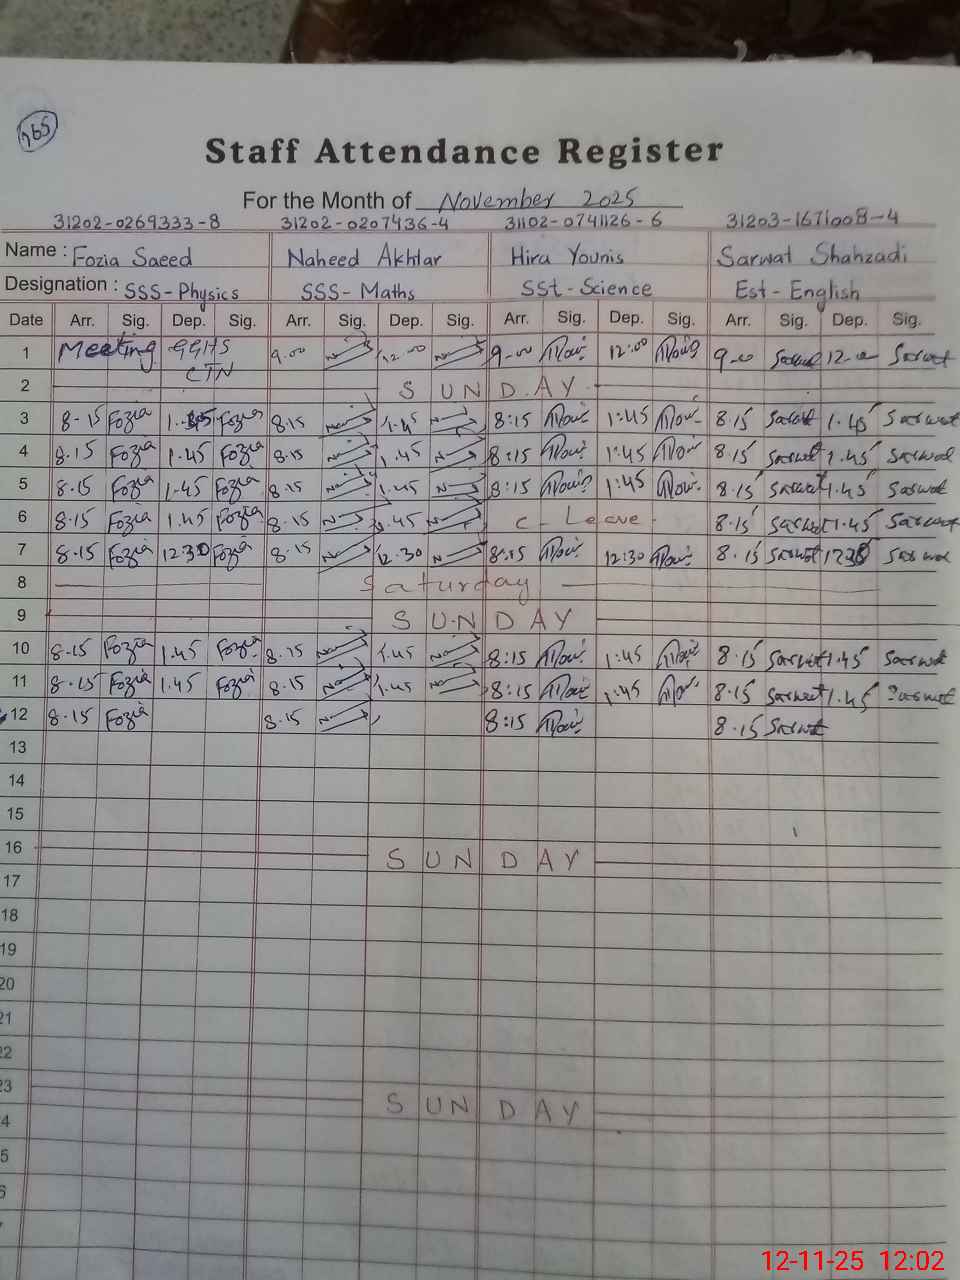 765
Staff Attendance Register
For the Month of November 2025
31202-0269333-8 31202-0207436-4 31102-0741126-6 31203-1671008-4
Name : Fozia Saeed Naheed Akhtar Hira Younis Sarwat Shahzadi
Designation : SSS-Physics SSS-Maths SSt-Science Est-English
Date Arr. Sig. Dep. Sig. Arr. Sig. Dep. Sig. Arr. Sig. Dep. Sig. Arr. Sig. Dep. Sig.
1 Meeting GGHS CTN 9.00 12.00 9-00 12:00 Sarwat Sarwat
2 SUNDAY
3 8-15 Fozia Fozia 8.15 1.45 8:15 1:45 8.15 Sarwat 1.45 Sarwat
4 8.15 Fozia 1.45 Fozia 8.15 1.45 8:15 1:45 8.15 Sarwat 1.45 Sarwat
5 8.15 Fozia 1.45 Fozia 8.15 1.45 8:15 1:45 8.15 Sarwat 1.45 Sarwat
6 8.15 Fozia 1.45 Fozia 8.15 1.45 C-Leave. 8.15 Sarwat 1.45 Sarwat
7 8.15 Fozia 12.30 Fozia 8.15 12.30 8:15 12:30 8.15 Sarwat Sarwat
8 Saturday
9 SUNDAY
10 8.15 Fozia 1.45 Fozia 8.15 1.45 8:15 1:45 8.15 Sarwat 1.45 Sarwat
11 8.15 Fozia 1.45 Fozia 8.15 1.45 8:15 1:45 8.15 Sarwat 1.45 Sarwat
12 8.15 Fozia 8.15 8:15 8.15 Sarwat
13
14
15
16 SUNDAY
17
18
19
20
21
22
23 SUNDAY
4
5
6
12-11-25 12:02